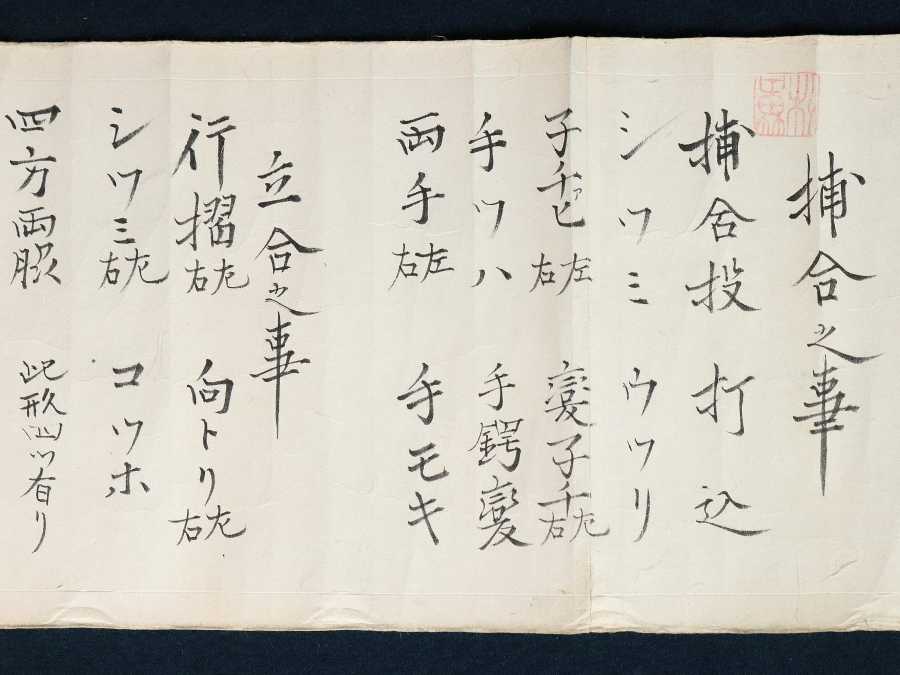 捕合之事
捕合投 打込
シツミ ウツリ
子 左右 変子 左右
手ツハ 手鍔変
両手 左右 手モキ
立合之事
行摺 左右 向トリ 左右
シツミ 左右 コツホ
四方両 此形四ツ有り